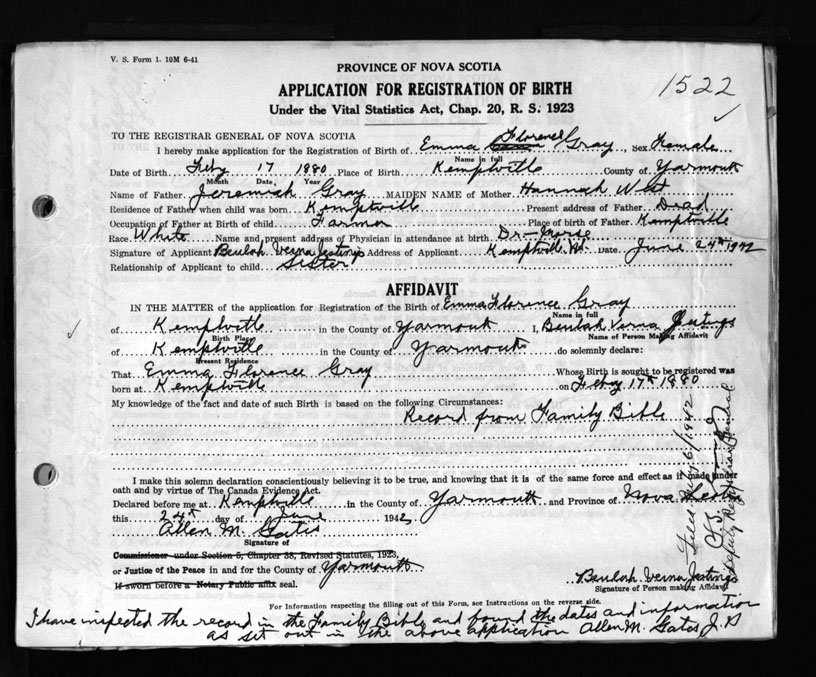 V. S. Form 1. 10M 6-41
PROVINCE OF NOVA SCOTIA
APPLICATION FOR REGISTRATION OF BIRTH
1522
Under the Vital Statistics Act, Chap. 20, R. S. 1923
TO THE REGISTRAR GENERAL OF NOVA SCOTIA
I hereby make application for the Registration of Birth of Emma Florence Gray, Sex Female
Name in full
Date of Birth Feby 17 1880 Place of Birth Kemptville County of Yarmouth
Month Date, Year
Name of Father Jeremiah Gray MAIDEN NAME of Mother Hannah
Residence of Father when child was born Kemptville Present address of Father Dead
Occupation of Father at Birth of child Farmer Place of birth of Father Kemptville
Race White Name and present address of Physician in attendance at birth Dr. Morse
Signature of Applicant Beulah Verna Address of Applicant Kemptville, Date June 24th 1942
Relationship of Applicant to child Sister
AFFIDAVIT
IN THE MATTER of the application for Registration of the Birth of Emma Florence Gray
Name in full
of Kemptville in the County of Yarmouth I, Beulah Verna
Birth Place Name of Person Making Affidavit
of Kemptville in the County of Yarmouth do solemnly declare:
Present Residence
That Emma Florence Gray Whose Birth is sought to be registered was
born at Kemptville on Feby 17th 1880
My knowledge of the fact and date of such Birth is based on the following Circumstances:
Record from Family Bible
I make this solemn declaration conscientiously believing it to be true, and knowing that it is of the same force and effect as if made under
oath and by virtue of The Canada Evidence Act.
Declared before me at Kemptville in the County of Yarmouth and Province of Nova Scotia
this 24th day of June 1942
Allen M. Gates
Signature of
Commissioner under Section 5, Chapter 38, Revised Statutes, 1923,
or Justice of the Peace in and for the County of Yarmouth
If sworn before a Notary Public affix seal.
Beulah Verna
Signature of Person making Affidavit
For Information respecting the filling out of this Form, see Instructions on the reverse side.
I have inspected the record in the Family Bible and found the dates and information
as set out in the above application Allen M. Gates J.P.